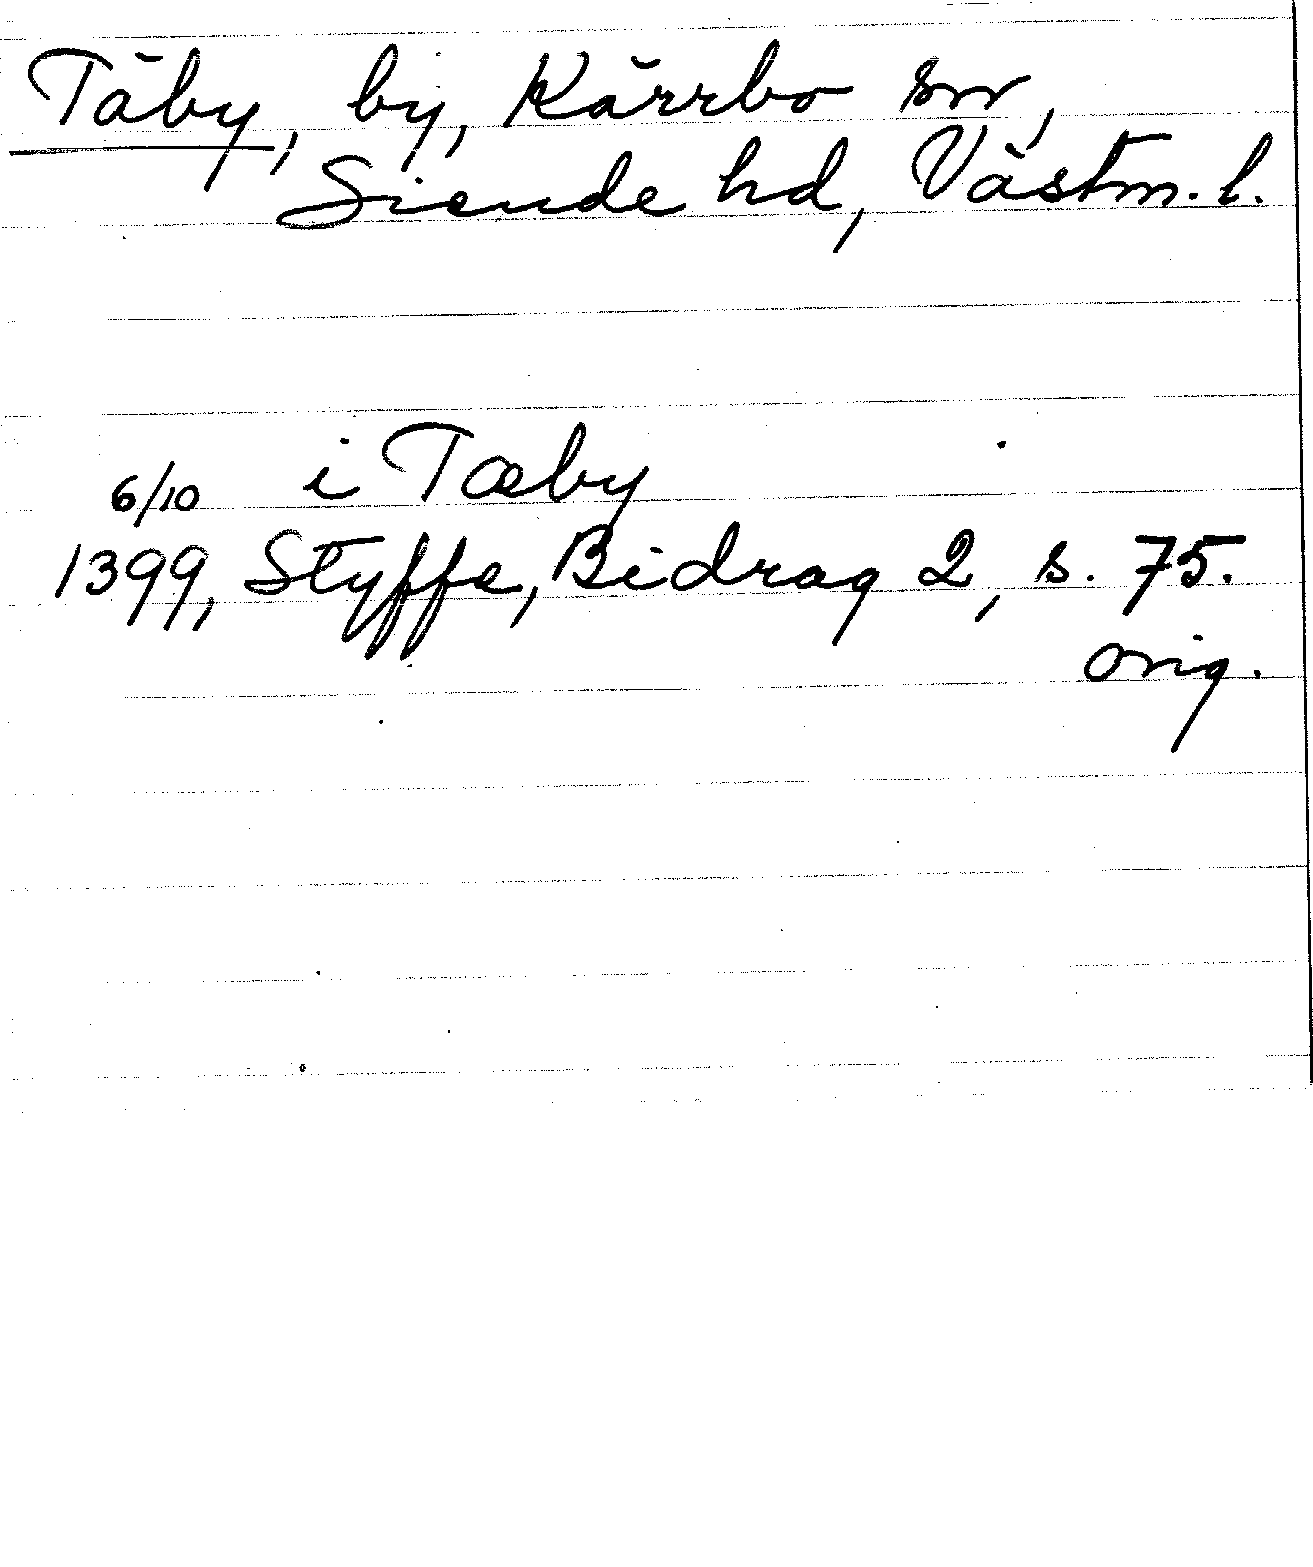 Täby, by, Kärrbo sn,
Siende hd, Västm. l.
i Tæby
6/10
1399, Styffe, Bidrag 2, s. 75.
orig.